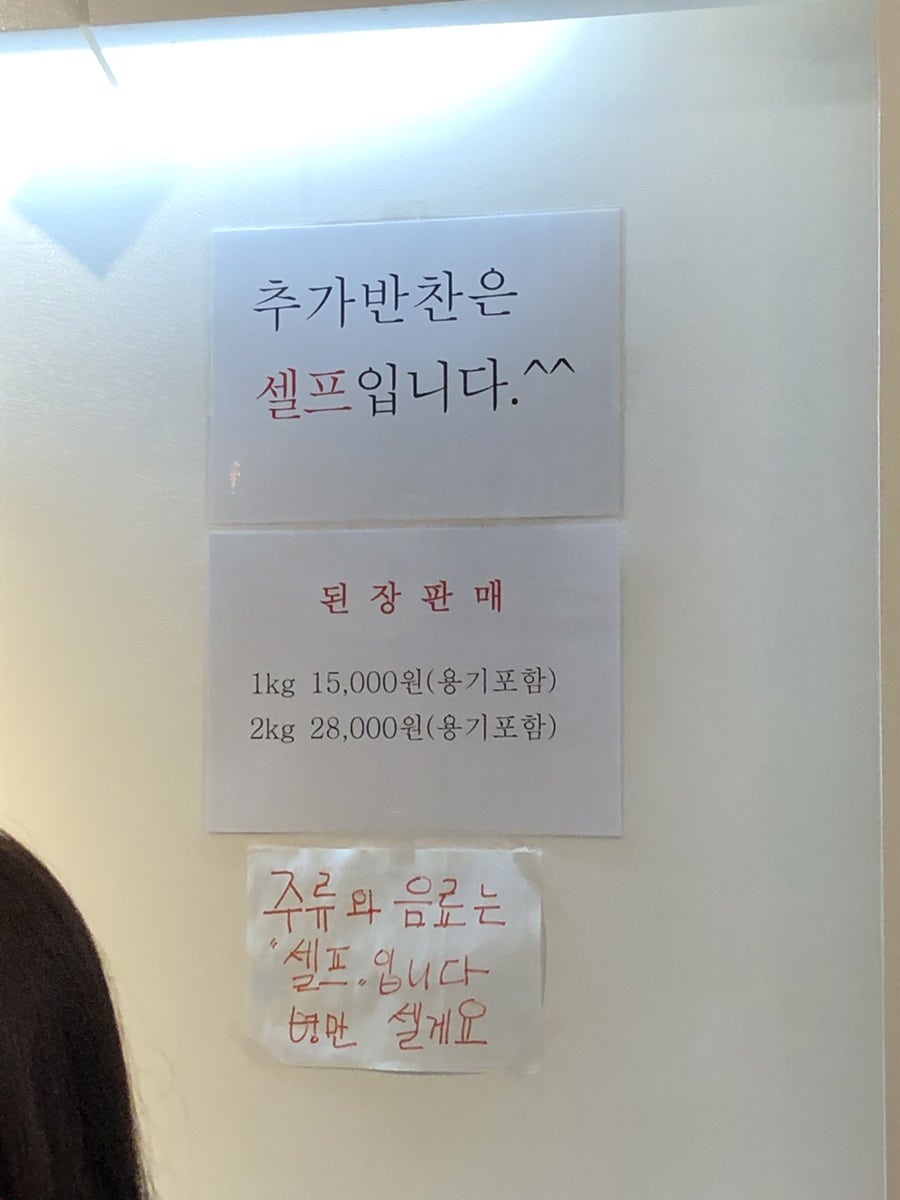 추가반찬은
셀프입니다.^^
된 장 판 매
1kg 15,000원(용기포함)
2kg 28,000원(용기포함)
주류와 음료는
"셀프"입니다
병만 셀게요